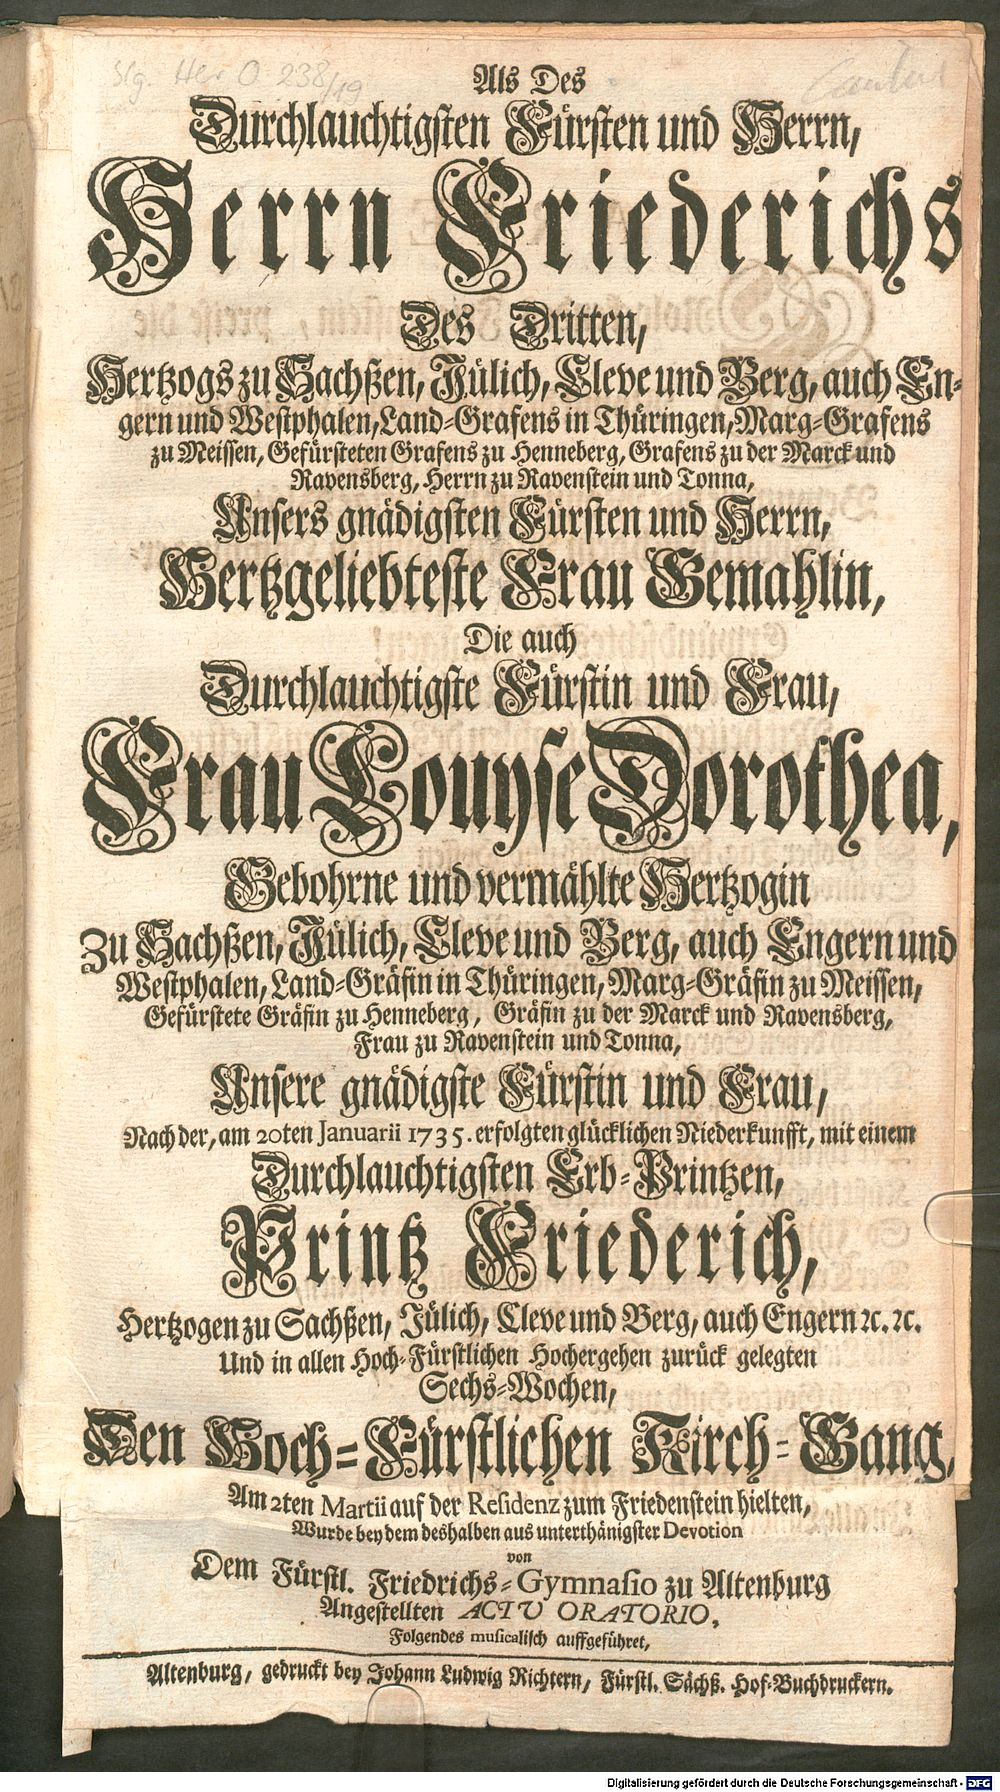 Slg. Her O. 238/19
Als Des
Durchlauchtigsten Fürsten und Herrn,
Herrn Friederichs
Des Dritten,
Hertzogs zu Sachßen, Jülich, Cleve und Berg, auch En-
gern und Westphalen, Land-Grafens in Thüringen, Marg-Grafens
zu Meissen, Gefürsteten Grafens zu Henneberg, Grafens zu der Marck und
Ravensberg, Herrn zu Ravenstein und Tonna,
Unsers gnädigsten Fürsten und Herrn,
Hertzgeliebteste Frau Gemahlin,
Die auch
Durchlauchtigste Fürstin und Frau,
Frau Louyse Dorothea,
Gebohrne und vermählte Hertzogin
zu Sachßen, Jülich, Cleve und Berg, auch Engern und
Westphalen, Land-Gräfin in Thüringen, Marg-Gräfin zu Meissen,
Gefürstete Gräfin zu Henneberg, Gräfin zu der Marck und Ravensberg,
Frau zu Ravenstein und Tonna,
Unsere gnädigste Fürstin und Frau,
Nach der, am 20ten Januarii 1735. erfolgten glücklichen Niederkunfft, mit einem
Durchlauchtigsten Erb-Printzen,
Printz Friederich,
Hertzogen zu Sachßen, Jülich, Cleve und Berg, auch Engern ꝛc. ꝛc.
Und in allen Hoch-Fürstlichen Hochergehen zurück gelegten
Sechs-Wochen,
Den Hoch-Fürstlichen Kirch-Gang,
Am 2ten Martii auf der Residenz zum Friedenstein hielten,
Wurde bey dem deshalben aus unterthänigster Devotion
von
Dem Fürstl. Friedrichs-Gymnasio zu Altenburg
Angestellten ACTU ORATORIO,
Folgendes musicalisch auffgeführet,
Altenburg, gedruckt bey Johann Ludwig Richtern, Fürstl. Sächß. Hof-Buchdruckern.
Digitalisierung gefördert durch die Deutsche Forschungsgemeinschaft - DFG